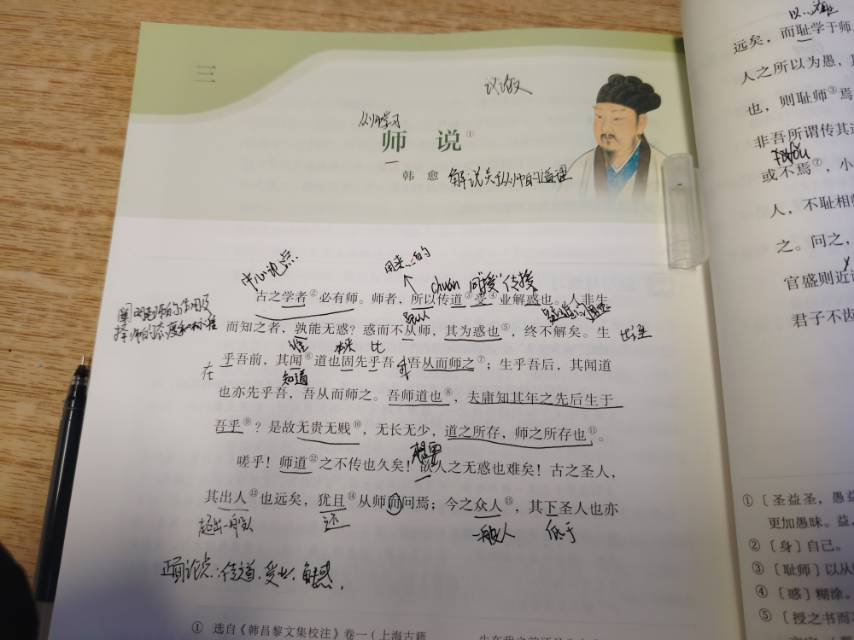 三
议论文
从师学习
师 说①
韩 愈 解说关于从师的道理
中心论点
用来…的
chuán 同"授"传授
古之学者②必有师。师者，所以传道③受④业解惑也。人非生
而知之者，孰能无惑？惑而不从师，其为惑也⑤，终不解矣。生 出生
谁 本来 比
在
乎吾前，其闻⑥道也固先乎吾，吾从而师之⑦；生乎吾后，其闻道
知道
也亦先乎吾，吾从而师之。吾师道也⑧，夫庸知其年之先后生于
吾乎⑨？是故无贵无贱⑩，无长无少，道之所存，师之所存也⑪。
想要
嗟乎！师道⑫之不传也久矣！欲人之无惑也难矣！古之圣人，
其出人⑬也远矣，犹且⑭从师而问焉；今之众人⑮，其下圣人也亦
超出一般人 还 一般人 低于
正面论点：传道、受业、解惑。
① 选自《韩昌黎文集校注》卷一（上海古籍
远矣，而耻学于师
人之所以为愚，
也，则耻师③焉
非吾所谓传其道
fǒu
或不焉⑦，小
人，不耻相
之。问之，
官盛则近
君子不齿
①〔圣益圣，愚益
更加愚昧。益，
②〔身〕自己。
③〔耻师〕以从
④〔惑〕糊涂。
⑤〔授之书而